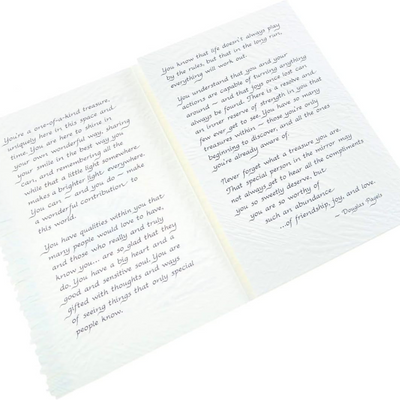 You're a one-of-a-kind treasure,
uniquely here in this space and
time. You are here to shine in
your own wonderful way, sharing
your smile in the best way you
can, and remembering all the
while that a little light somewhere
makes a brighter light everywhere.
You can — and you do — make
a wonderful contribution to
this world.
You have qualities within you that
many people would love to have,
and those who really and truly
know you... are so glad that they
do. You have a big heart and a
good and sensitive soul. You are
gifted with thoughts and ways
of seeing things that only special
people know.
You know that life doesn't always play
by the rules, but that in the long run,
everything will work out.
You understand that you and your
actions are capable of turning anything
around — and that joys once lost can
always be found. There is a resolve and
an inner reserve of strength in you that
few ever get to see. You have so many
treasures within — those you're only
beginning to discover, and all the ones
you're already aware of.
Never forget what a treasure you are.
That special person in the mirror may
not always get to hear all the compliments
you so sweetly deserve, but
you are so worthy of
such an abundance
...of friendship, joy, and love.
— Douglas Pagels